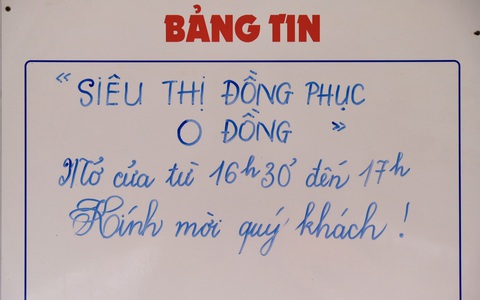 BẢNG TIN
“ SIÊU THỊ ĐỒNG PHỤC
O ĐỒNG ”
Mở cửa từ 16h30' đến 17h
Kính mời quý khách !